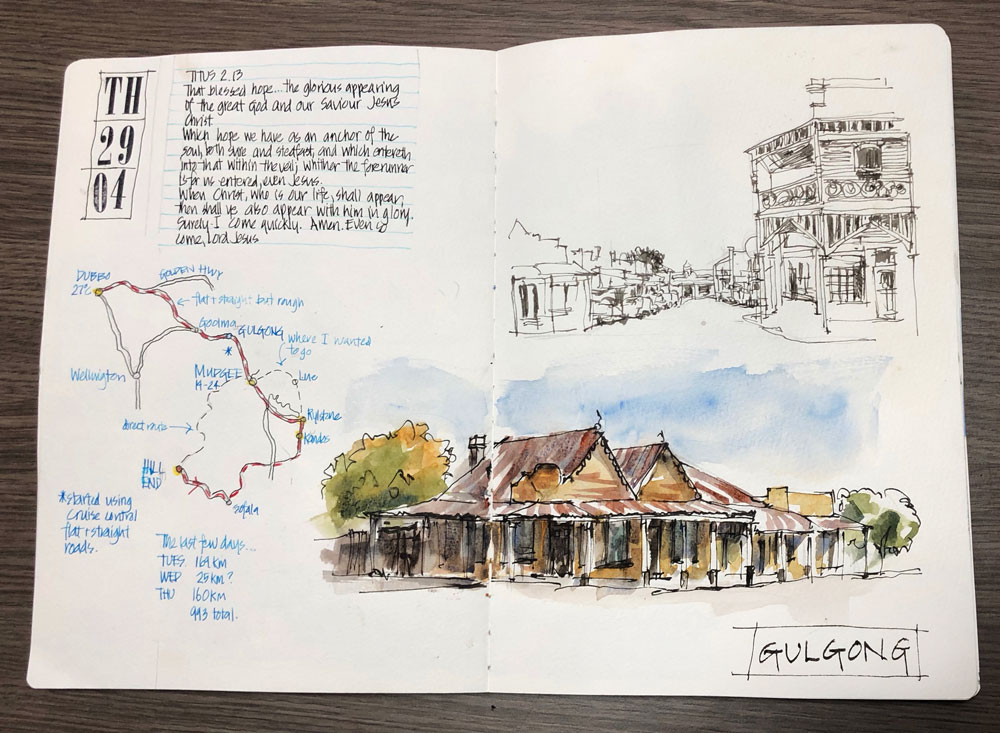 TH
29
04
TITUS 2.13
That blessed hope... the glorious appearing
of the great God and our Saviour Jesus
Christ
Which hope we have as an anchor of the
soul, both sure and stedfast, and which entereth
into that within the veil; whither the forerunner
is for us entered, even Jesus.
When Christ, who is our life, shall appear,
then shall ye also appear with him in glory.
Surely I come quickly. Amen. Even so
come, Lord Jesus
DUBBO
27°C
GOLDEN HWY
← flat + straight but rough
Goolma
GULGONG
*
where I wanted
to go
MUDGEE
19-24
Lue
Wellington
Rylstone
Kandos
direct route →
HILL
END
Sofala
*started using
Cruise control
flat + straight
roads.
The last few days...
TUES 164 km
WED 25 km?
THU 160 km
993 total.
GULGONG